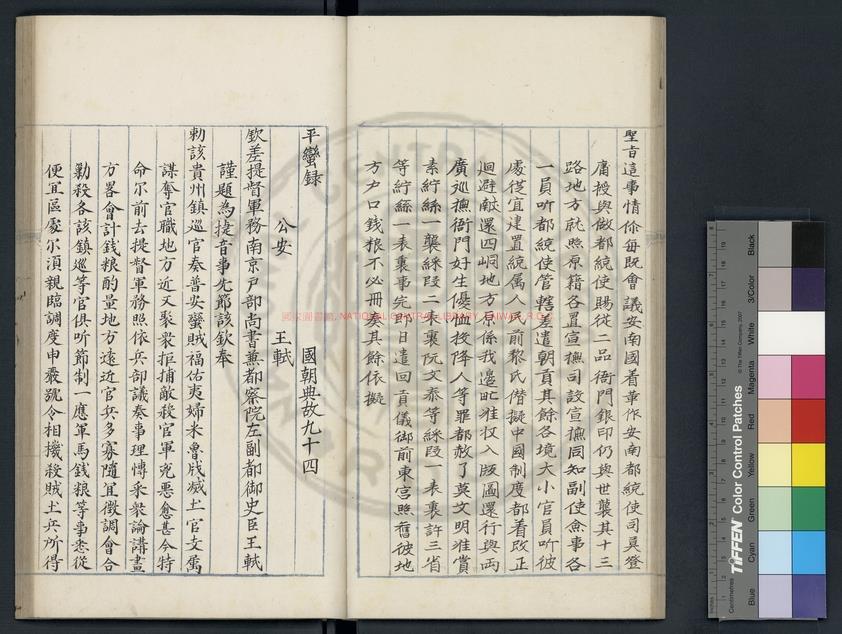 聖旨這事情你每既會議安南國着革作安南都統使司莫登
庸授與做都統使賜從二品衙門銀印仍與世襲其十三
路地方就照原籍各置宣撫司設宣撫同知副使僉事各
一員听都統使管轄差遣朝貢其餘各境大小官員听彼
處從宜建置統属人民前黎氏僭擬中國制度都着改正
迴避敵還四峒地方原係我邊地准収入版圖還行與兩
廣巡撫衙門好生優恤投降人等罪都赦了莫文明准賞
素紵絲一襲綵叚二表裏阮文泰等綵叚一表裏許三省
等紵絲一表裏事完即日遣回貢儀御前東宮照舊彼地
方户口錢粮不必冊奏其餘依擬
平蠻録
國朝典故九十四
公安 王軾
欽差提督軍務南京戶部尚書兼都察院左副都御史臣王軾
謹題為捷音事先節該欽奉
勅該貴州鎮巡官奏普安蠻賊福佑夷婦米魯戕滅土官支属
謀奪官職地方近又聚衆拒捕敵殺官軍兇惡愈甚今特
命尔前去提督軍務照依兵部議奏事理愽采衆論講畫
方畧會計錢粮酌量地方遠近官兵多寡隨宜徵調會合
勦殺各該鎮巡等官俱听節制一應軍馬錢粮等事悉從
便宜區處尔須親臨調度申嚴號令相機殺賊土兵所得
國家圖書館, NATIONAL CENTRAL LIBRARY, TAIWAN, R.O.C
TIFFEN Color Control Patches
© The Tiffen Company, 2007
Centimetres
Inches
Blue
Cyan
Green
Yellow
Red
Magenta
White
3/Color
Black